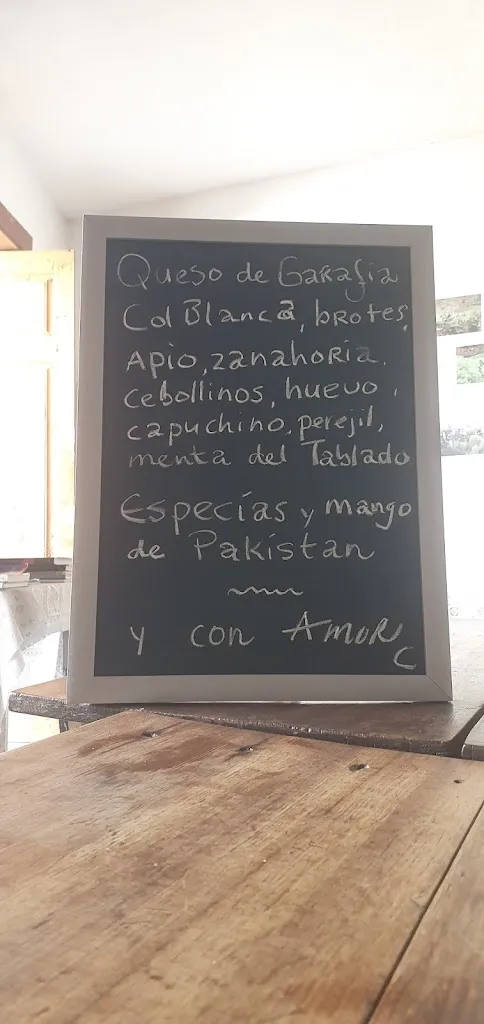 Queso de Garafia
Col Blanca, brotes,
Apio, zanahoria,
cebollinos, huevo,
capuchino, perejil,
menta del Tablado
Especías y mango
de Pakistan
y con AMOR
C